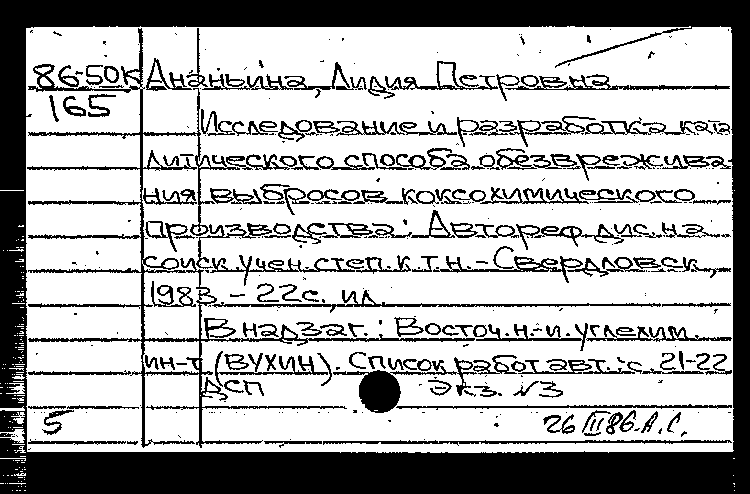 86-50К Ананьина, Лидия Петровна
165
Исследование и разработка ката
литического способа обезврежива-
ния выбросов коксохимического
производства: Автореф. дис. на
соиск. учен. степ. к.т.н. - Свердловск,
1983. - 22с., ил.
В надзаг.: Восточ. н.-и. углехим.
ин-т (ВУХИН). Список работ авт.: с. 21-22
ДСП Экз. №3
5 26 II 86. А.С.